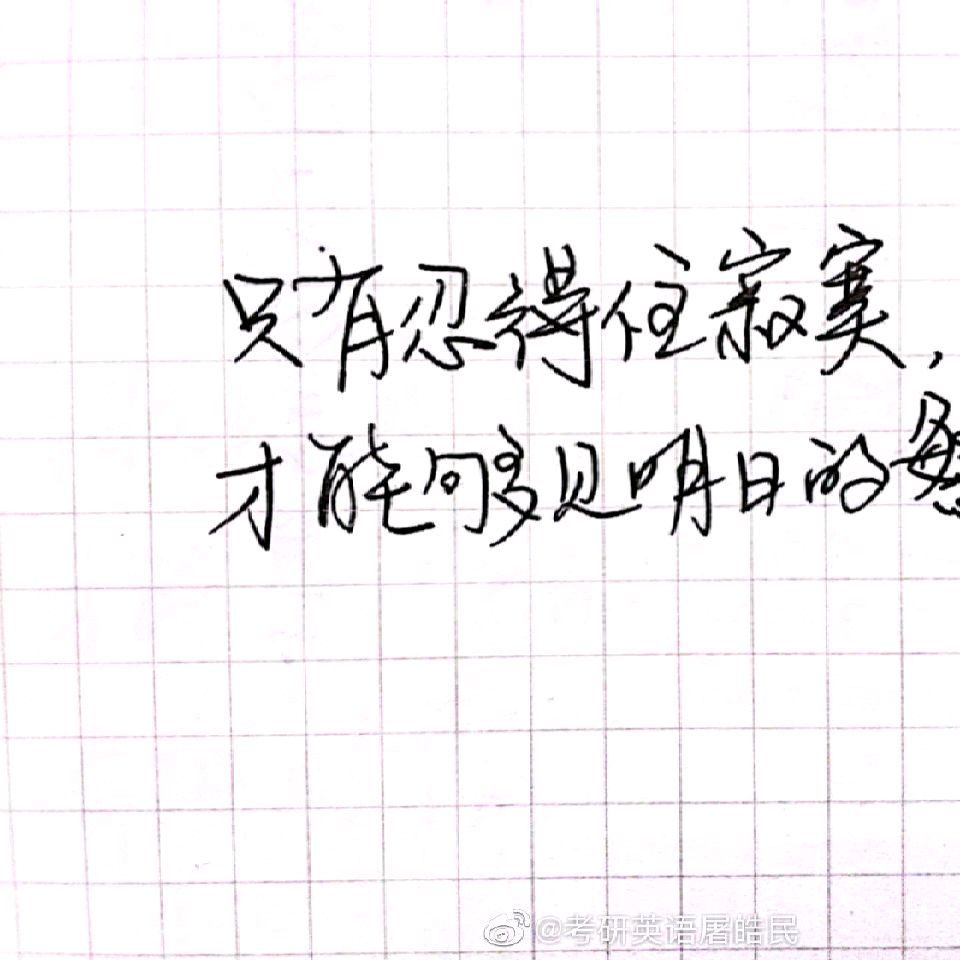 只有忍得住寂寞，
才能够见明日的
@考研英语屠皓民